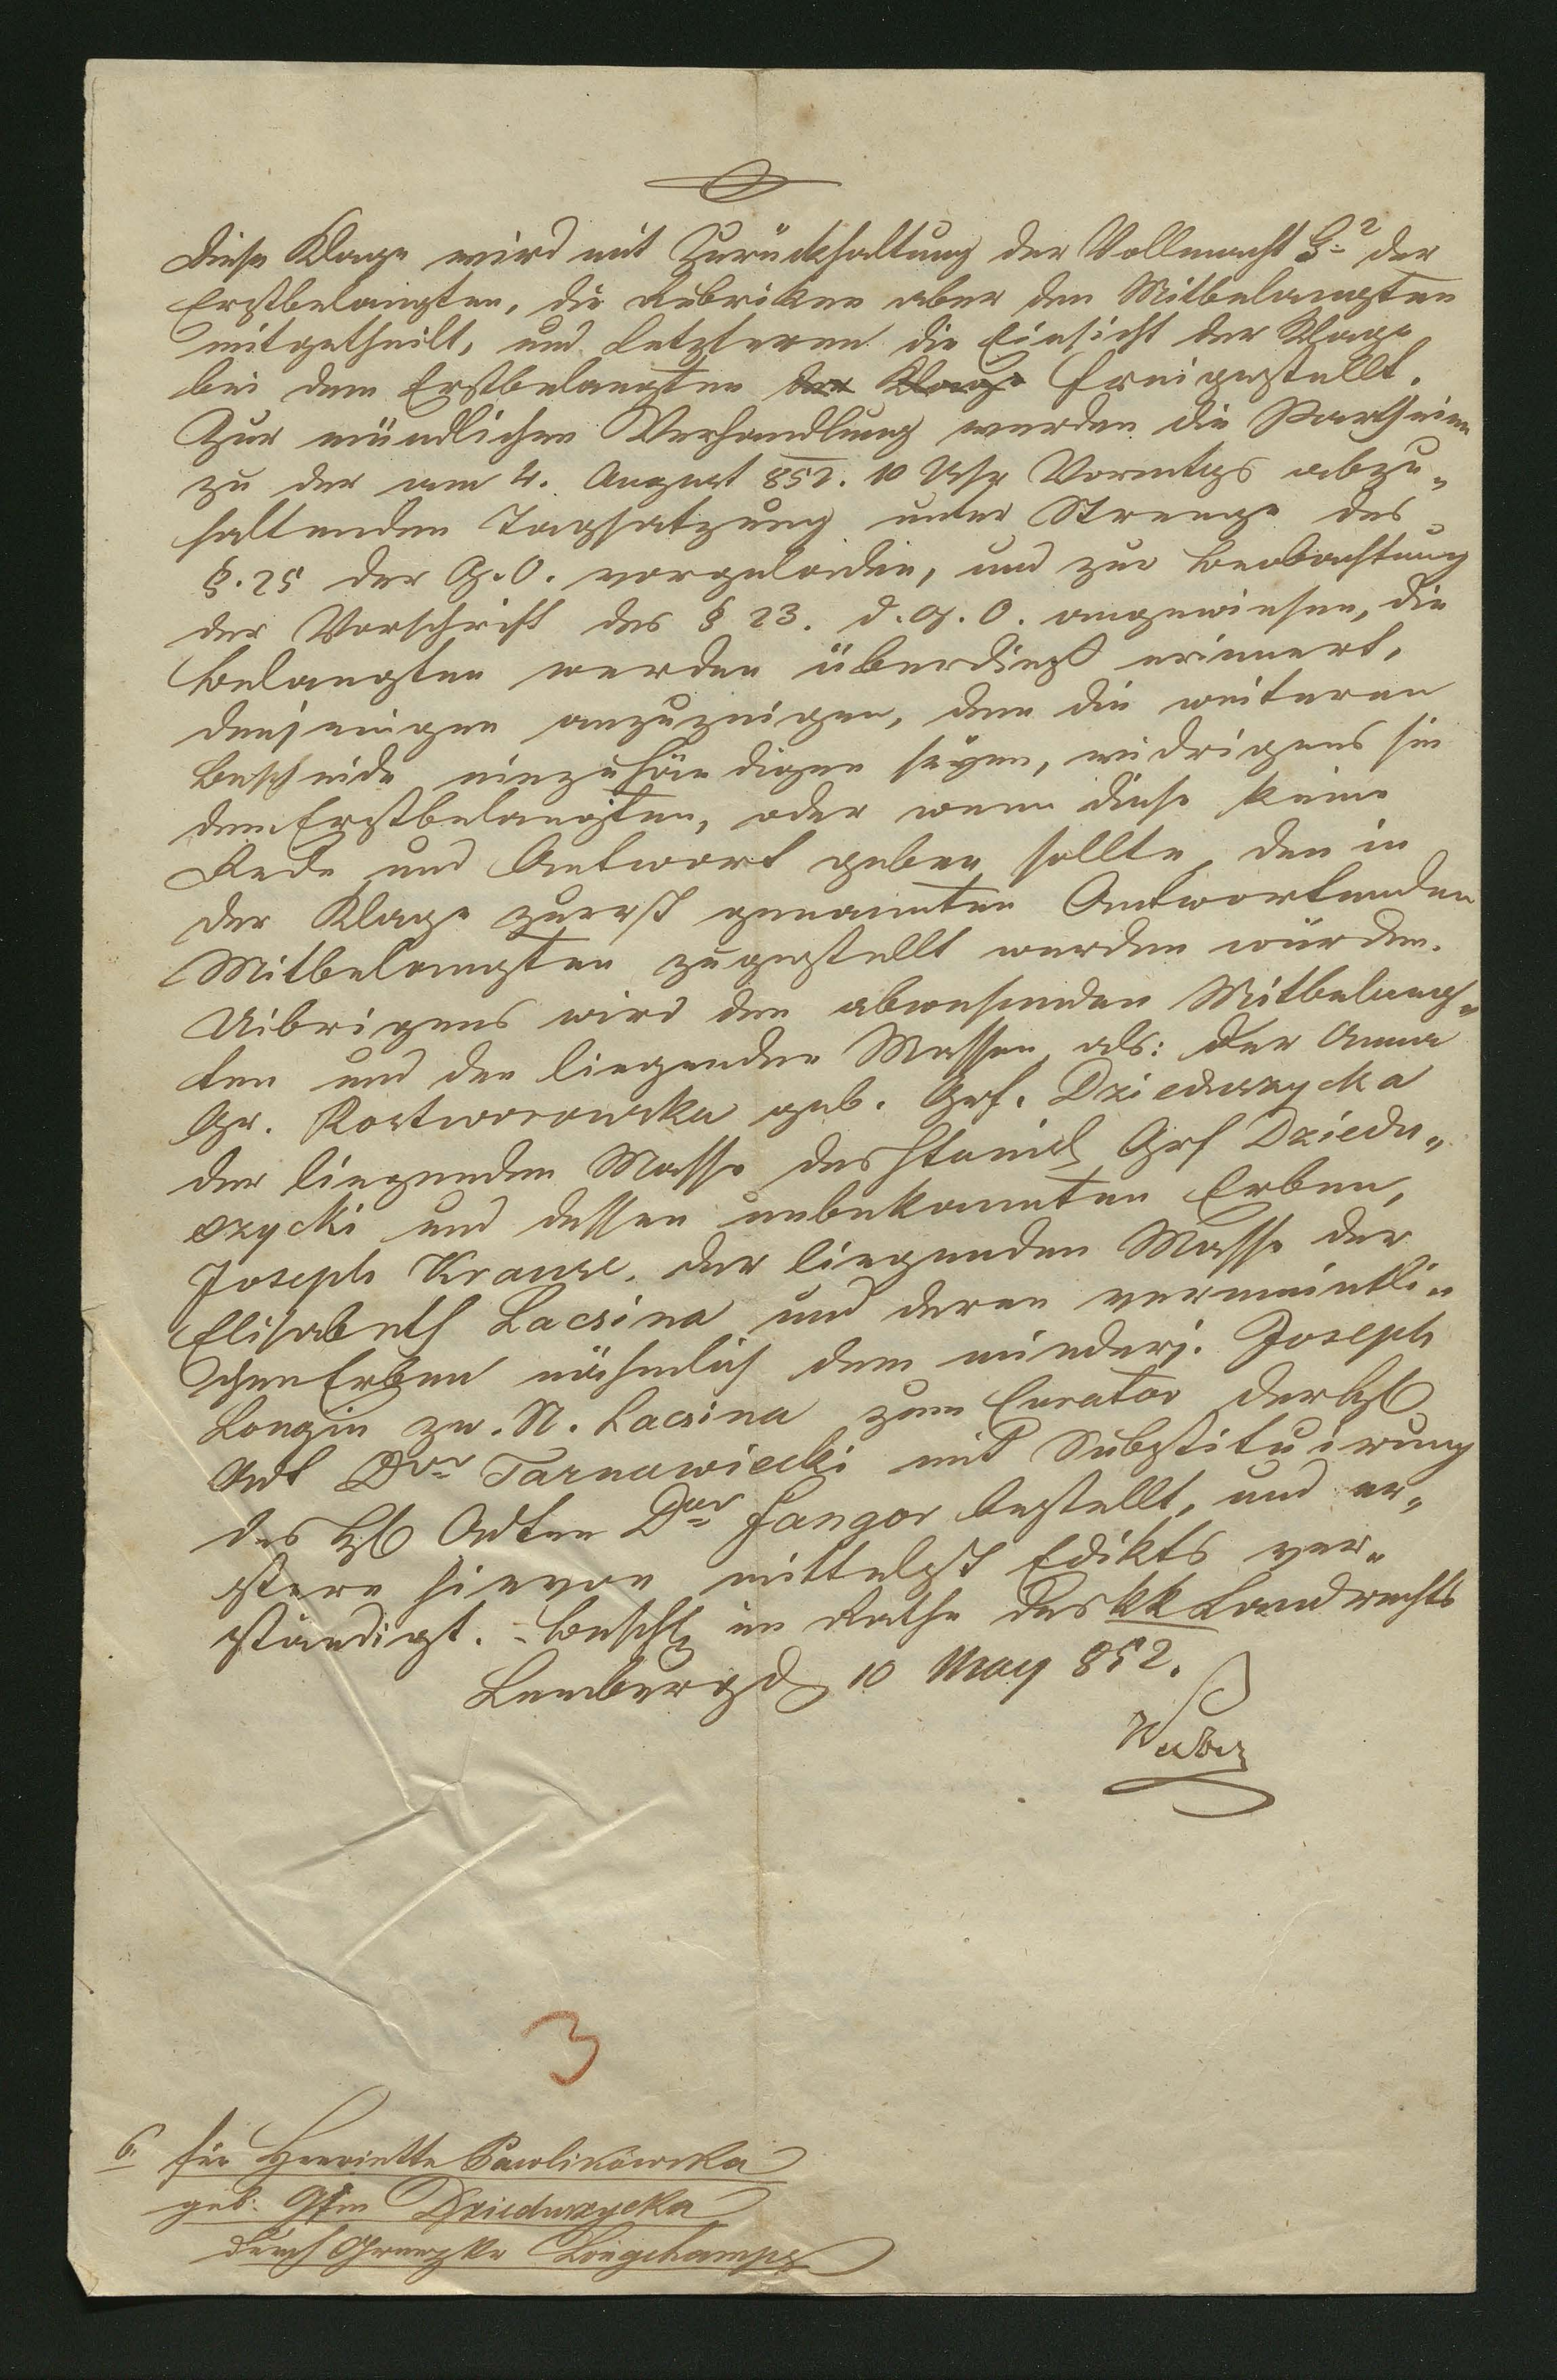 Diese Klage wird mit Zurückhaltung der Vollmacht G der
Erstbelangten, die Rubriken aber den Mitbelangten
mitgetheilt, und Letzteren die Einsicht der Klage
bei dem Erstbelangten der Klage freigestellt.
Zur mündlichen Verhandlung werden die Partheien
zu der am 4. August 852. 10 Uhr Vormtgs abzu„
haltenden Tagsatzung unter Strenge des
§. 25 der G. O. vorgeladen, und zur Beobachtung
der Vorschrift des § 23. d. G. O. angewiesen, die
Belangten werden überdieß erinnert,
denjenigen anzuzeigen, dem die weiteren
Bescheide einzuhändigen seyen, widrigens sie
dem Erstbelangten, oder wenn diese keine
Rede und Antwort geben sollte, den in
der Klage zuerst genannten Antwortenden
Mitbelangten zugestellt werden würden.
Uibrigens wird den abwesenden Mitbelang„
ten und den liegenden Massen als: der Anna
Gr. Rostworowska geb. Grf. Dzieduszycka
der liegenden Masse des Grf Dziedu„
szycki und dessen unbekannten Erben,
Joseph Krause, der liegenden Masse der
Elisabeth Lacsina und deren vermeintli„
chen Erben nähmlich dem minderj. Joseph
Longin zw. N. Lacsina zum Curator der
Adt Dor Tarnawiecki mit Substituirung
des Adten Dor Fangor bestellt, und er„
stere hievon mittelst Edikts ver„
ständigt. – Beschl im Rathe des kk Landrechts
Lemberg d 10 May 852.
6. für Henriette Pawlikowska
geb. Gfin Dzieduszycka
durch Longchamps
3